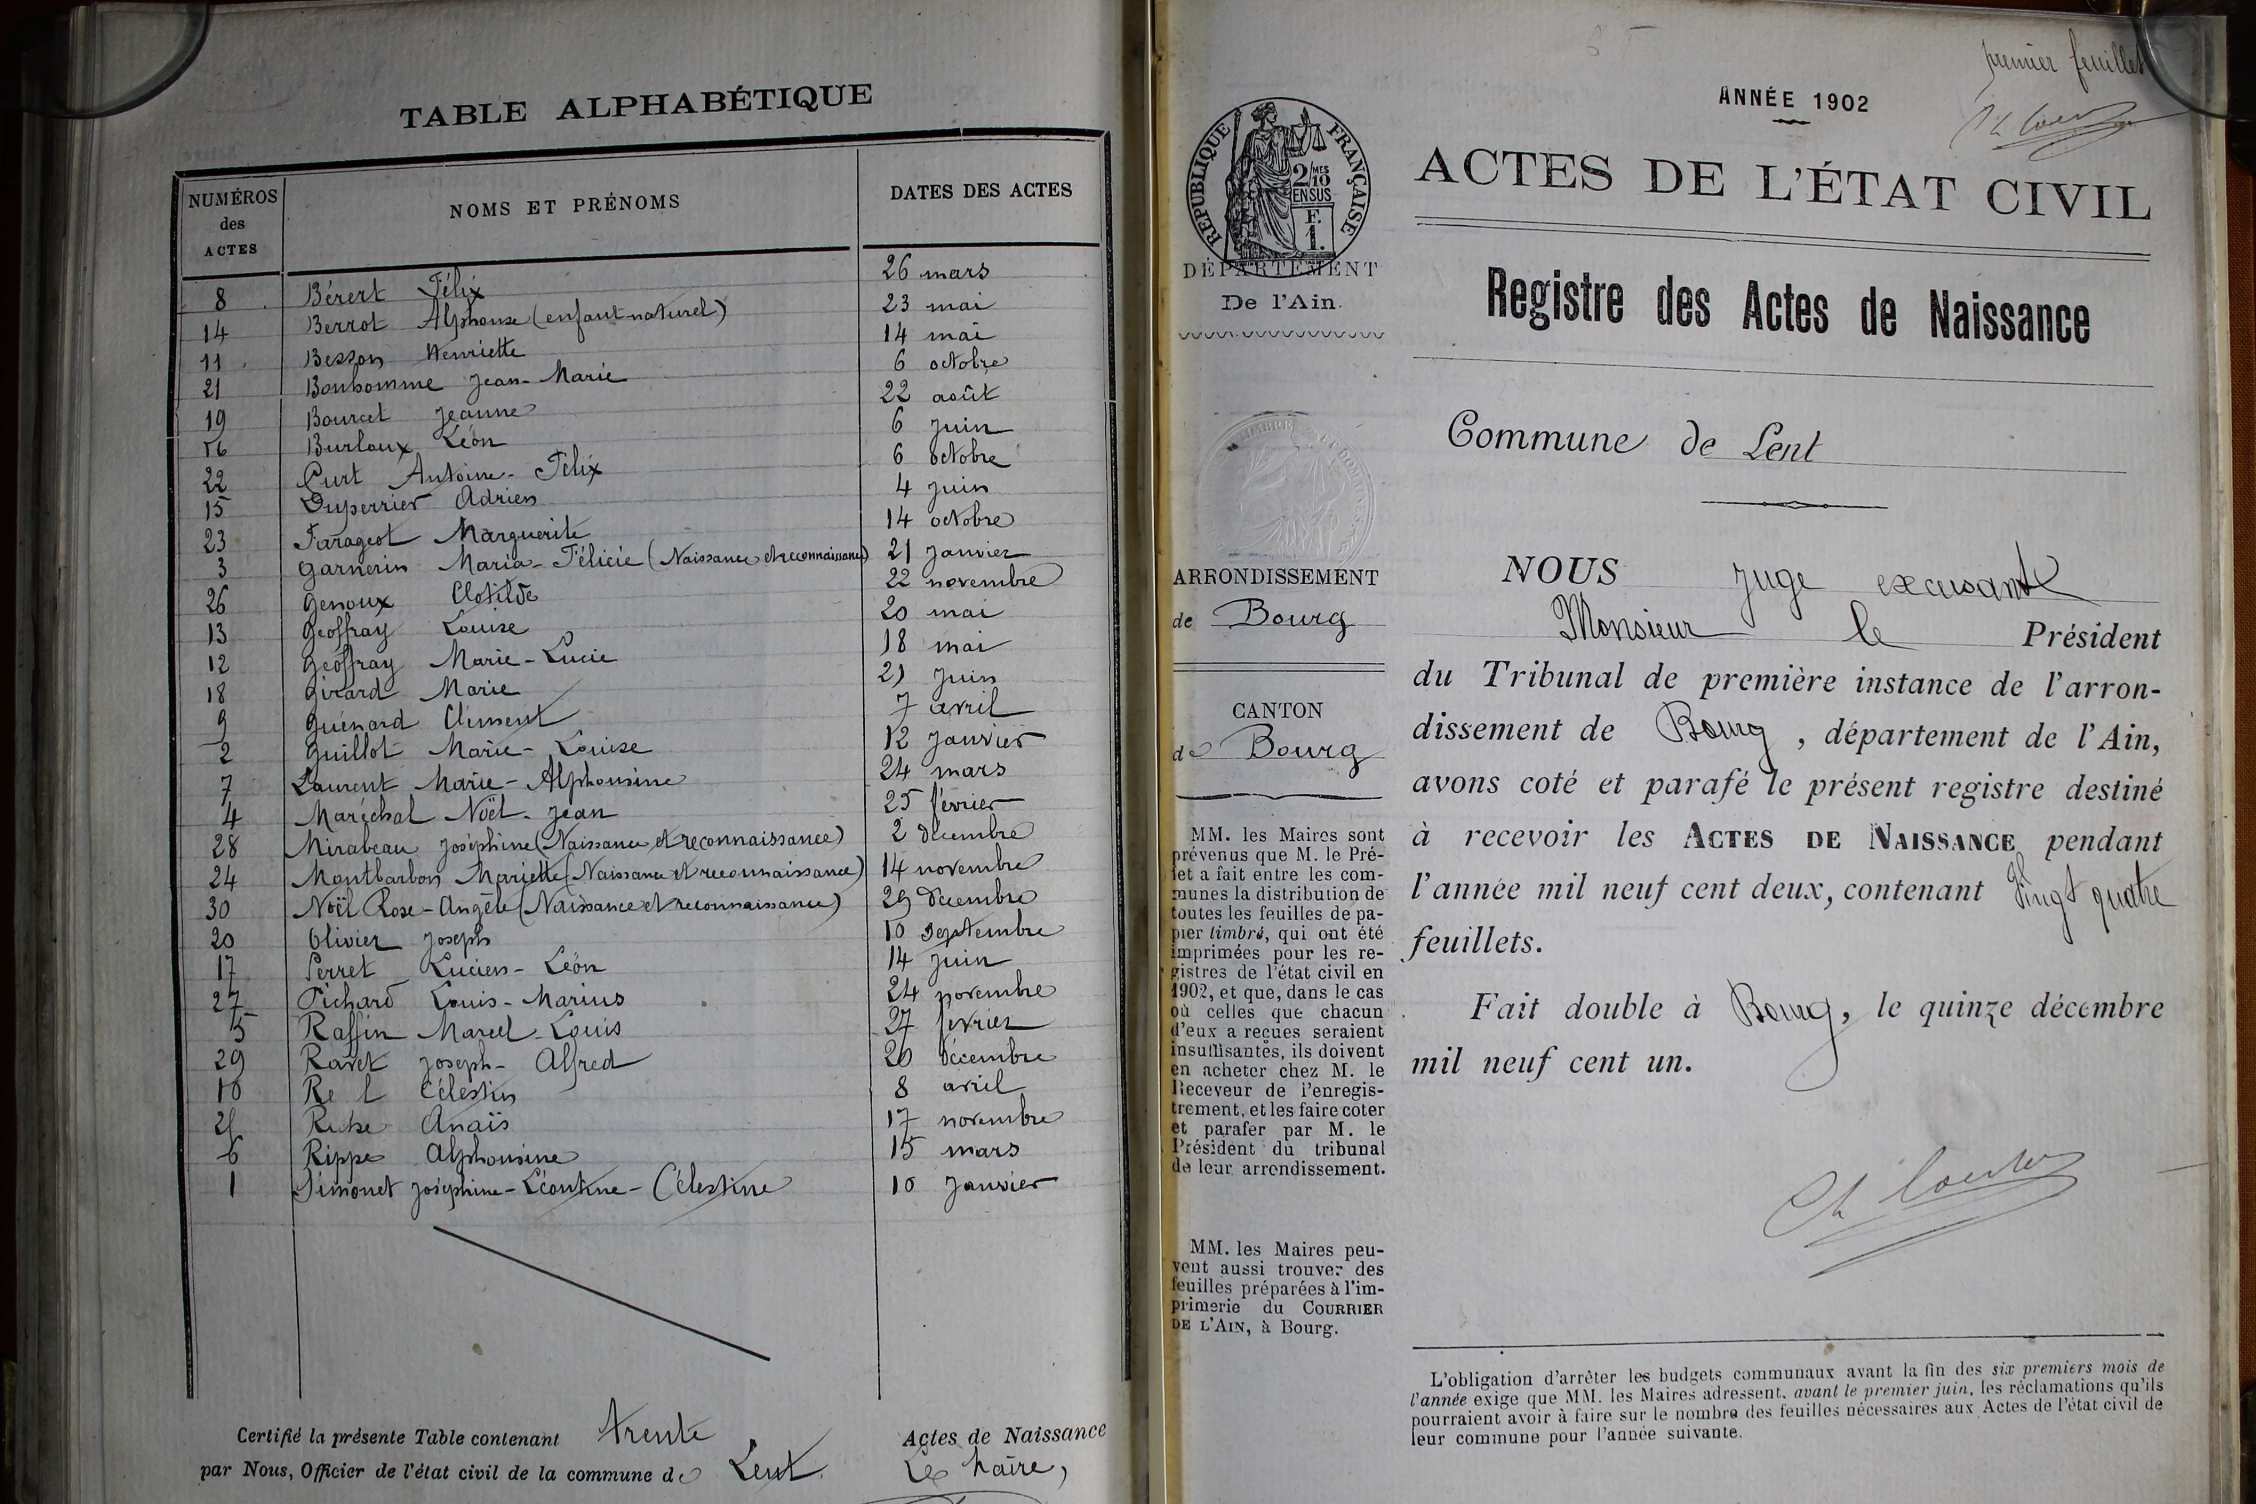 TABLE ALPHABÉTIQUE
NUMÉROS des ACTES NOMS ET PRÉNOMS DATES DES ACTES
8 Bérert Félix 26 mars
14 Berrot Alphonse (enfant naturel) 23 mai
11 Besson Henriette 14 mai
21 Bonhomme Jean-Marie 6 octobre
19 Bourcet Jeanne 22 août
16 Burloux Léon 6 juin
22 Curt Antoine-Félix 6 octobre
15 Duperrier Adrien 4 juin
23 Farageot Marguerite 14 octobre
3 Garnerin Maria-Félicie (Naissance et reconnaissance) 21 janvier
26 Genoux Clotilde 22 novembre
13 Geoffray Louise 20 mai
12 Geoffray Marie-Lucie 18 mai
18 Girard Marie 21 juin
9 Guénard Clément 7 avril
2 Guillot Marie-Louise 12 janvier
7 Laurent Marie-Alphonsine 24 mars
4 Maréchal Noël-Jean 25 février
28 Mirabeau Joséphine (Naissance et reconnaissance) 2 décembre
24 Montbarbon Mariette (Naissance et reconnaissance) 14 novembre
30 Noël Rose-Angèle (Naissance et reconnaissance) 29 décembre
20 Olivier Joseph 10 septembre
17 Perret Lucien-Léon 14 juin
27 Pichard Louis-Marius 24 novembre
5 Raffin Marcel-Louis 27 février
29 Ravet Joseph-Alfred 20 décembre
10 Célestin 8 avril
25 Anaïs 17 novembre
6 Rippe Alphonsine 15 mars
1 Simonet Joséphine-Léontine-Célestine 10 janvier
Certifié la présente Table contenant trente Actes de Naissance
par Nous, Officier de l'état civil de la commune de Lent. Le Maire,
premier feuillet
ANNÉE 1902
RÉPUBLIQUE FRANÇAISE
2/10 MES
EN SUS
F.
1.
ACTES DE L'ÉTAT CIVIL
DÉPARTEMENT
De l'Ain.
Registre des Actes de Naissance
Commune de Lent
ARRONDISSEMENT
de Bourg
CANTON
de Bourg
MM. les Maires sont
prévenus que M. le Pré-
fet a fait entre les com-
munes la distribution de
toutes les feuilles de pa-
pier timbré, qui ont été
imprimées pour les re-
gistres de l'état civil en
1902, et que, dans le cas
où celles que chacun
d'eux a reçues seraient
insuffisantes, ils doivent
en acheter chez M. le
Receveur de l'enregis-
trement, et les faire coter
et parafer par M. le
Président du tribunal
de leur arrondissement.
MM. les Maires peu-
vent aussi trouver des
feuilles préparées à l'im-
primerie du COURRIER
DE L'AIN, à Bourg.
NOUS Juge excusant
Monsieur le Président
du Tribunal de première instance de l'arron-
dissement de Bourg, département de l'Ain,
avons coté et parafé le présent registre destiné
à recevoir les ACTES DE NAISSANCE pendant
l'année mil neuf cent deux, contenant vingt quatre
feuillets.
Fait double à Bourg, le quinze décembre
mil neuf cent un.
L'obligation d'arrêter les budgets communaux avant la fin des six premiers mois de
l'année exige que MM. les Maires adressent, avant le premier juin, les réclamations qu'ils
pourraient avoir à faire sur le nombre des feuilles nécessaires aux Actes de l'état civil de
leur commune pour l'année suivante.